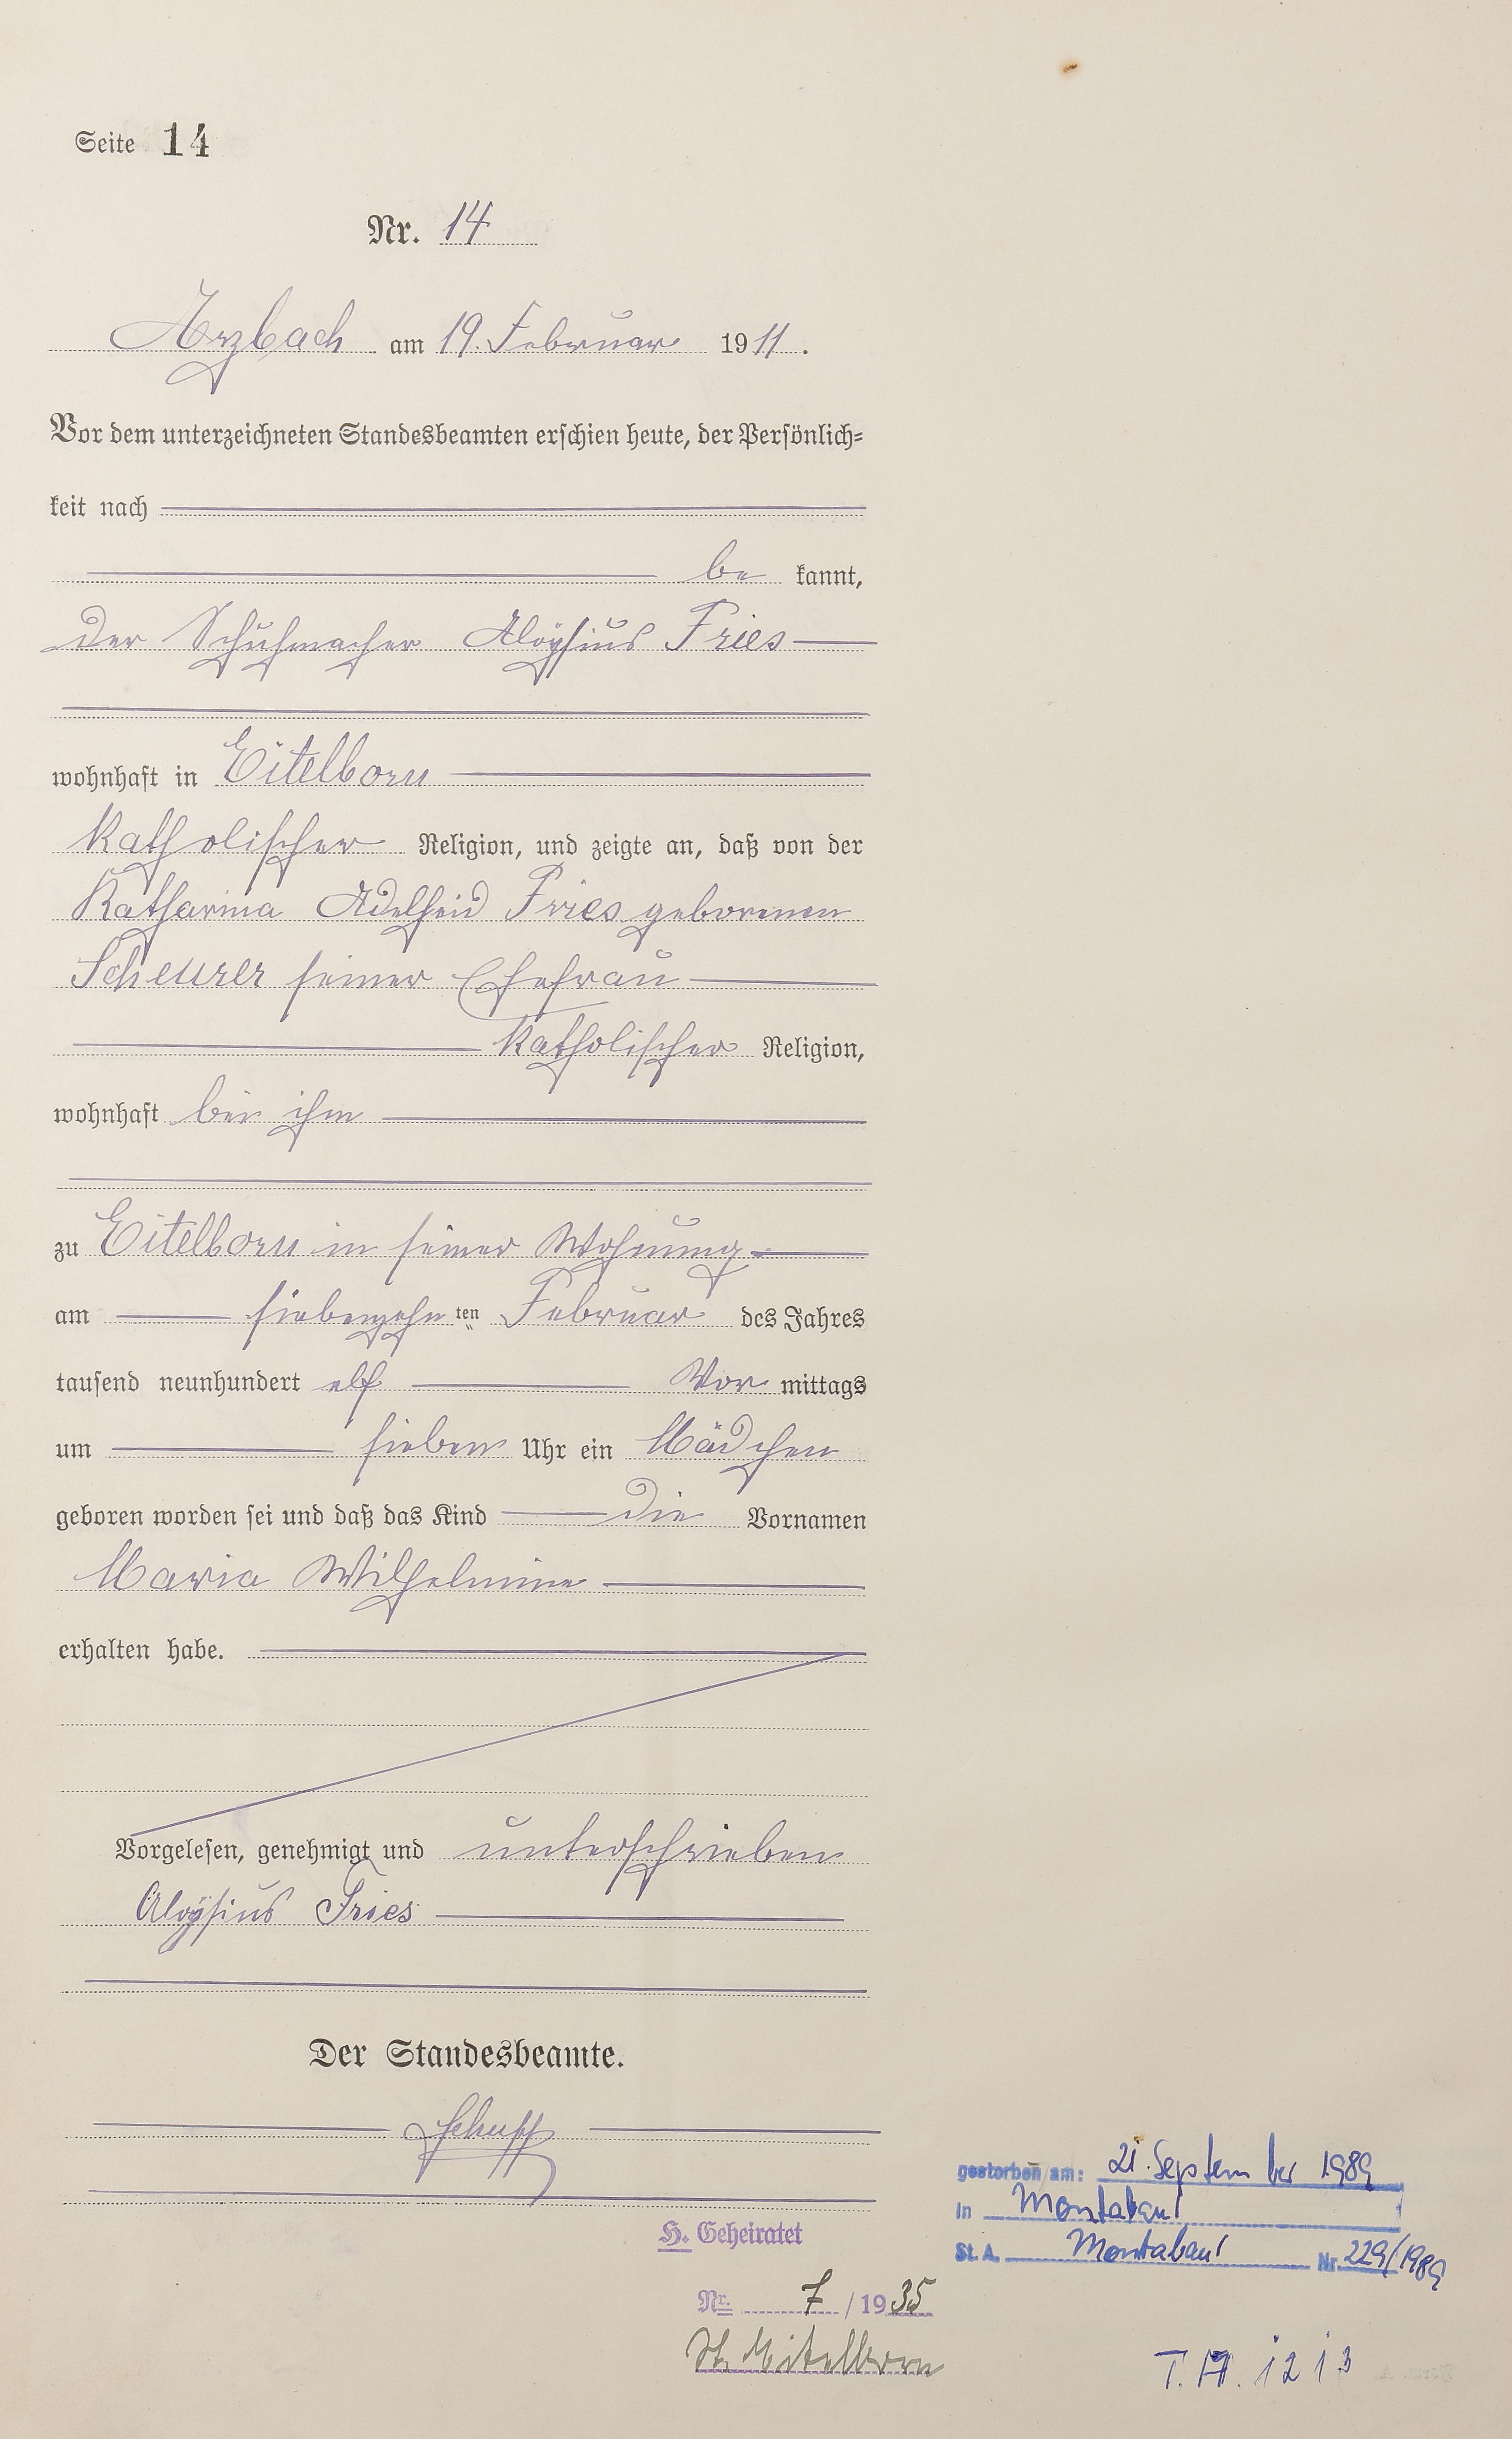 Seite 14
Nr. 14
Arzbach am 19. Februar 1911.
Vor dem unterzeichneten Standesbeamten erschien heute, der Persönlich-
keit nach
be kannt,
der Schuhmacher Aloÿsius Fries
wohnhaft in Eitelborn
katholischer Religion, und zeigte an, daß von der
Katharina Adelheid Fries geborenen
Scheurer seiner Ehefrau
katholischer Religion,
wohnhaft bei ihm
zu Eitelborn in seiner Wohnung
am siebenzehn ten Februar des Jahres
tausend neunhundert elf Vor mittags
um sieben Uhr ein Mädchen
geboren worden sei und daß das Kind die Vornamen
Maria Wilhelmine
erhalten habe.
Vorgelesen, genehmigt und unterschrieben
Aloÿsius Fries
Der Standesbeamte.
Schupp
gestorben am: 21. September 1989
in Montabaur
St. A. Montabaur Nr. 229/1989
H. Geheiratet
Nr. 7 / 1935
St. Eitelborn
T. A. 1213